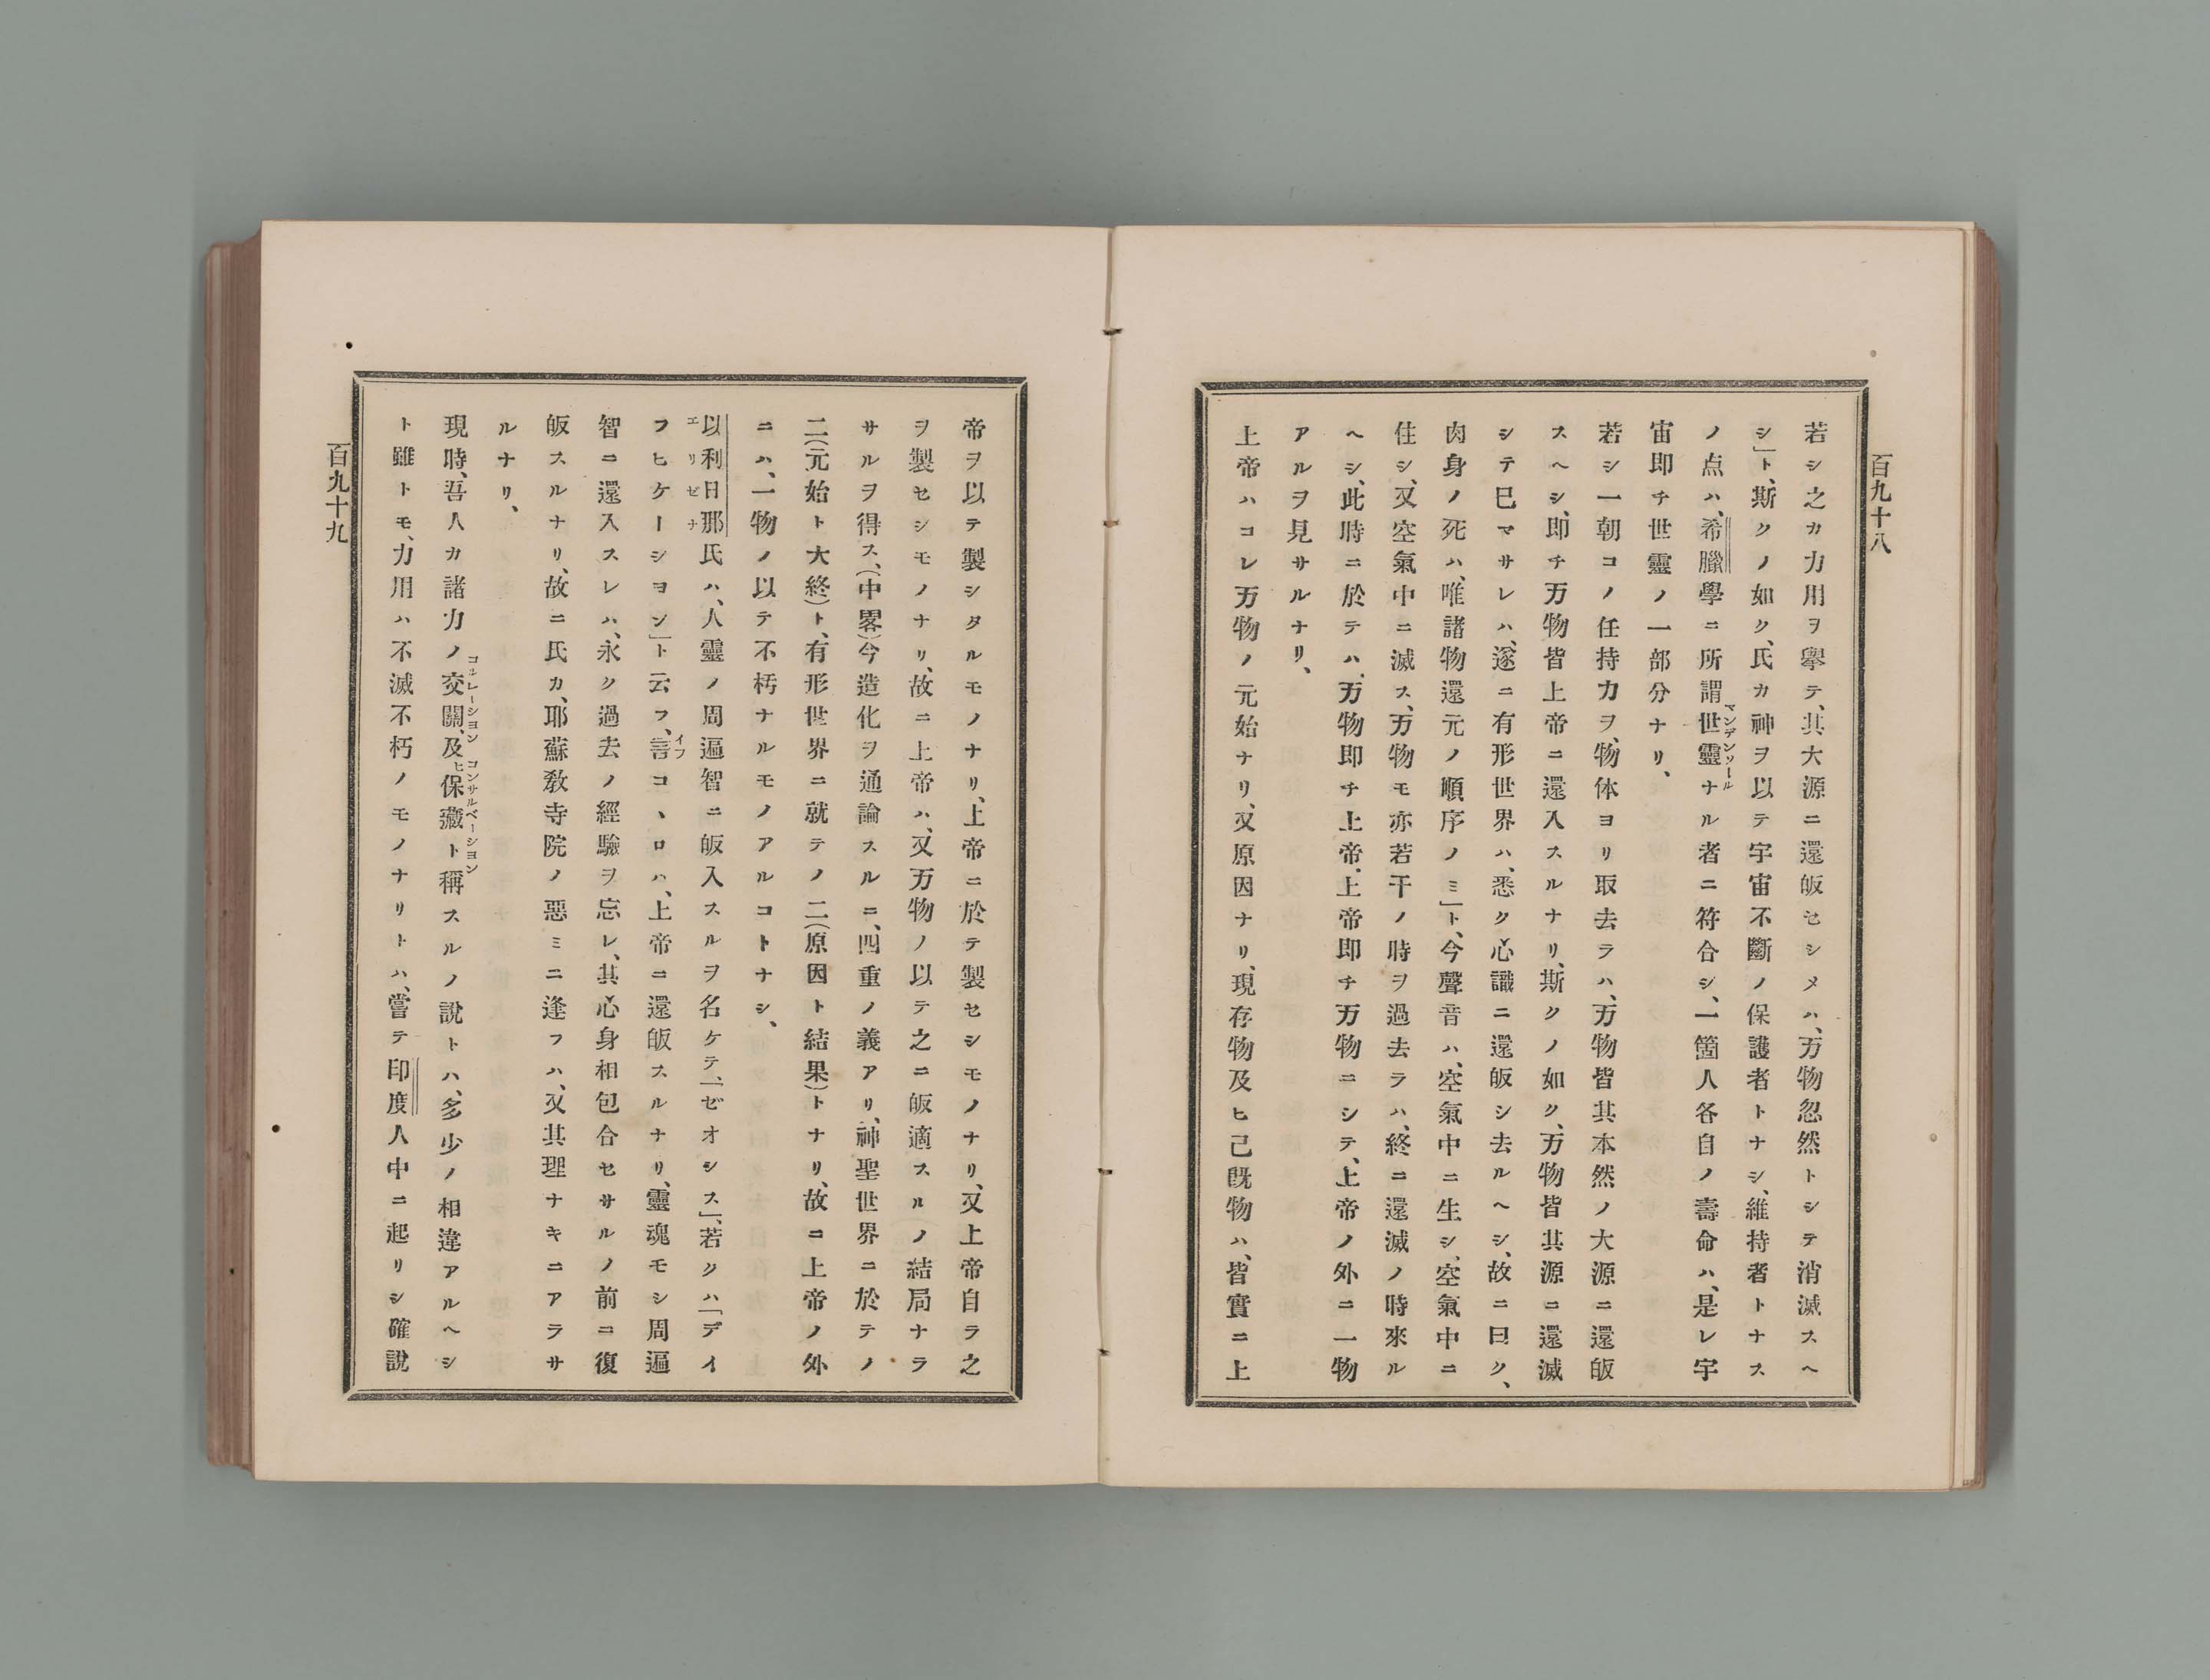 百九十八
若シ之カ力用ヲ擧テ、其大源ニ還皈セシメハ、万物忽然トシテ消滅スヘ
シ」ト、斯クノ如ク、氏カ神ヲ以テ宇宙不斷ノ保護者トナシ、維持者トナス
ノ点ハ、希臘學ニ所謂世靈ナル者ニ符合シ、一箇人各自ノ壽命ハ、是レ宇
マンデンソール
宙即チ世靈ノ一部分ナリ、
若シ一朝コノ任持力ヲ、物体ヨリ取去ラハ、万物皆其本然ノ大源ニ還皈
スヘシ、即チ万物皆上帝ニ還入スルナリ、斯クノ如ク、万物皆其源ニ還滅
シテ已マサレハ、遂ニ有形世界ハ、悉ク心識ニ還皈シ去ルヘシ、故ニ曰ク、
肉身ノ死ハ、唯諸物還元ノ順序ノミ」ト、今聲音ハ、空氣中ニ生シ、空氣中ニ
住シ、又空氣中ニ滅ス、万物モ亦若干ノ時ヲ過去ラハ、終ニ還滅ノ時來ル
ヘシ、此時ニ於テハ、万物即チ上帝、上帝即チ万物ニシテ、上帝ノ外ニ一物
アルヲ見サルナリ、
上帝ハコレ万物ノ元始ナリ、又原因ナリ、現存物及ヒ已既物ハ、皆實ニ上
帝ヲ以テ製シタルモノナリ、上帝ニ於テ製セシモノナリ、又上帝自ラ之
ヲ製セシモノナリ、故ニ上帝ハ、又万物ノ以テ之ニ皈適スルノ結局ナラ
サルヲ得ス、(中畧)今造化ヲ通論スルニ、四重ノ義アリ、神聖世界ニ於テノ
二(元始ト大終)ト、有形世界ニ就テノ二(原因ト結果)トナリ、故ニ上帝ノ外
ニハ、一物ノ以テ不朽ナルモノアルコトナシ、
以利日那氏ハ、人靈ノ周遍智ニ皈入スルヲ名ケテ、「ゼオシス」、若クハ「デイ
エリゼナ
フヒケーシヨン」ト云フ、言コヽロハ、上帝ニ還皈スルナリ、靈魂モシ周遍
イフ
智ニ還入スレハ、永ク過去ノ經驗ヲ忘レ、其心身相包合セサルノ前ニ復
皈スルナリ、故ニ氏カ、耶蘇敎寺院ノ惡ミニ逢フハ、又其理ナキニアラサ
ルナリ、
現時、吾人カ諸力ノ交關、及ヒ保藏ト稱スルノ說トハ、多少ノ相違アルヘシ
コルレーシヨン コンサルベーシヨン
ト雖トモ、力用ハ不滅不朽ノモノナリトハ、嘗テ印度人中ニ起リシ確說
百九十九